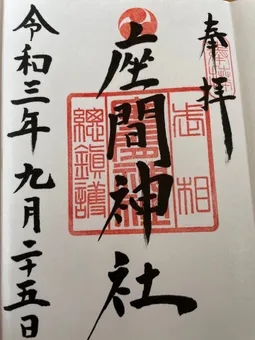 奉拝
座間神社
武相
總鎮護
令和三年九月二十五日